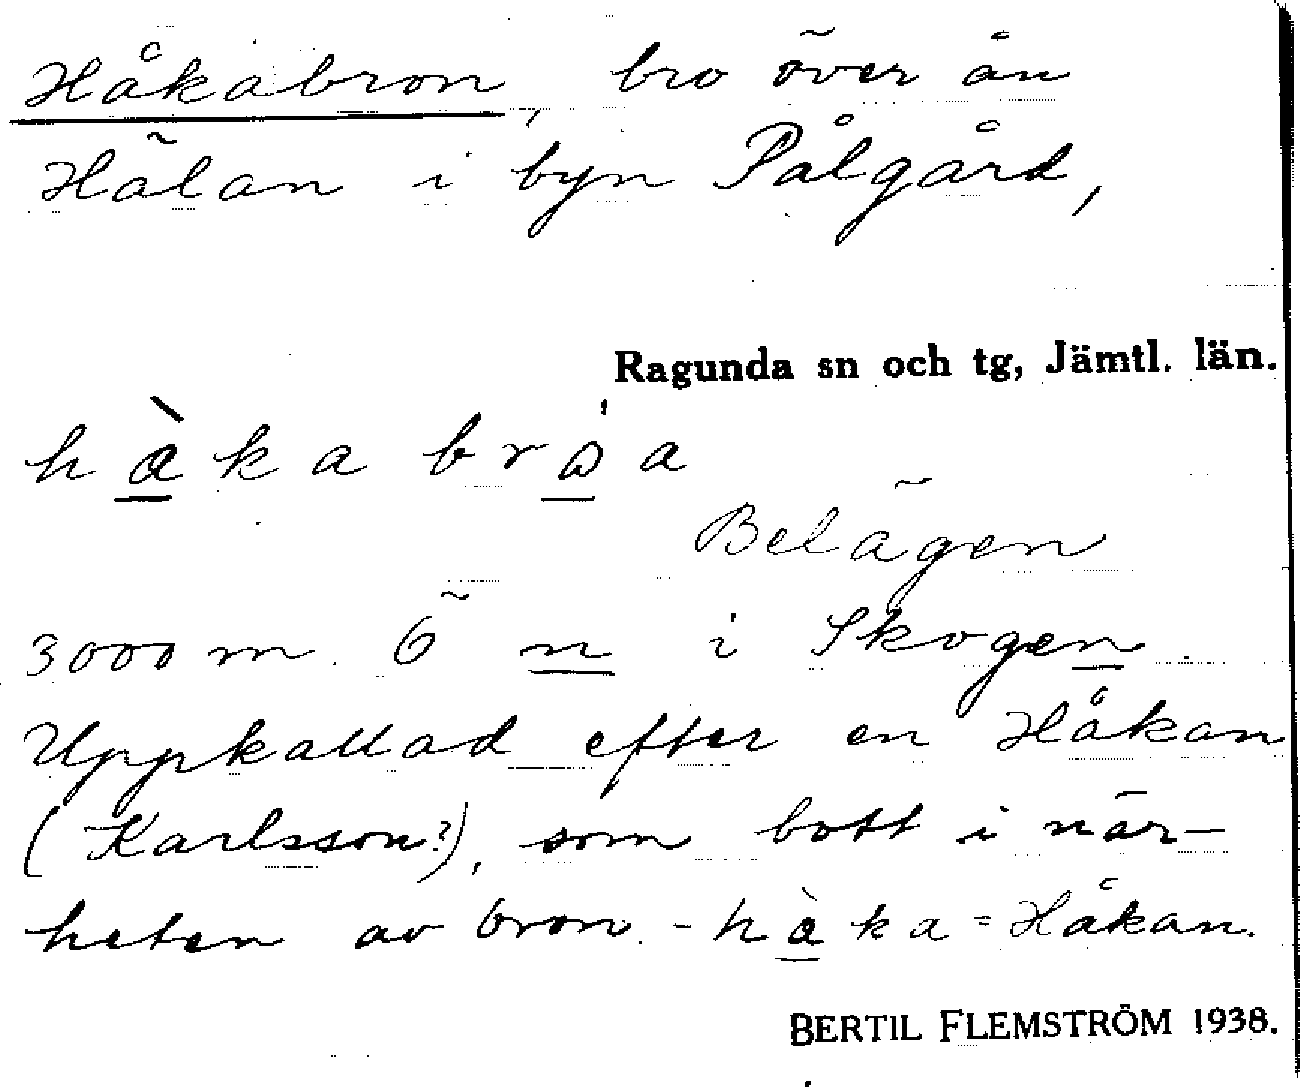 Håkabron, bro över ån
Hälan i byn Pålgård,
Ragunda sn och tg, Jämtl. län.
hàka brɷ́a
Belägen
3000 m. Ö n i Skogen.
Uppkallad efter en Håkan
(Karlsson?), som bott i när-
heten av bron. - hàka = Håkan.
BERTIL FLEMSTRÖM 1938.